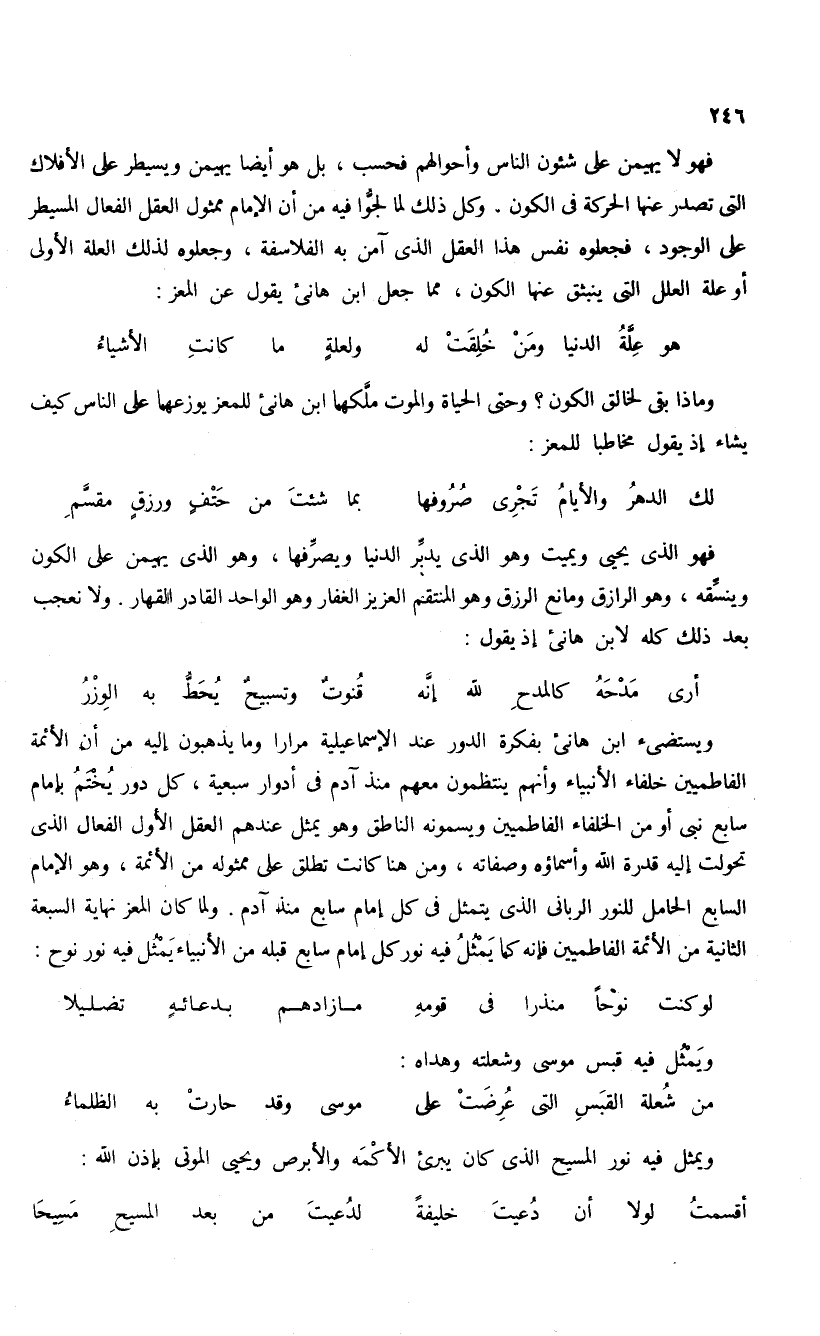 ٢٤٦
فهو لا يهيمن على شئون الناس وأحوالهم فحسب ، بل هو أيضا يهيمن ويسيطر على الأفلاك
التى تصدر عنها الحركة فى الكون . وكل ذلك لما لجُّوا فيه من أن الإمام ممثول العقل الفعال المسيطر
على الوجود ، فجعلوه نفس هذا العقل الذى آمن به الفلاسفة ، وجعلوه لذلك العلة الأولى
أو علة العلل التى ينبثق عنها الكون ، مما جعل ابن هانئ يقول عن المعز :
هو عِلَّةُ الدنيا ومَنْ خُلِقَتْ له ولعلةٍ ما كانتِ الأشياءُ
وماذا بقى لخالق الكون ؟ وحتى الحياة والموت ملَّكها ابن هانئ للمعز يوزعها على الناس كيف
يشاء إذ يقول مخاطبا للمعز :
لك الدهرُ والأيامُ تَجْرِى صُرُوفها بما شئتَ من حَتْفٍ ورزقٍ مقسَّمِ
فهو الذى يحيى ويميت وهو الذى يدبِّر الدنيا ويصرِّفها ، وهو الذى يهيمن على الكون
وينسِّقه ، وهو الرازق ومانع الرزق وهو المنتقم العزيز الغفار وهو الواحد القادر القهار . ولا نعجب
بعد ذلك كله لابن هانئ إذ يقول :
أرى مَدْحَهُ كالمدحِ لله إنَّه قُنوتٌ وتسبيحٌ يُحَطُّ به الوِزْرُ
ويستضىء ابن هانئ بفكرة الدور عند الإسماعيلية مرارا وما يذهبون إليه من أن الأئمة
الفاطميين خلفاء الأنبياء وأنهم ينتظمون معهم منذ آدم فى أدوار سبعية ، كل دور يُخْتَمُ بإمام
سابع نبى أو من الخلفاء الفاطميين ويسمونه الناطق وهو يمثل عندهم العقل الأول الفعال الذى
تحولت إليه قدرة الله وأسماؤه وصفاته ، ومن هنا كانت تطلق على ممثوله من الأئمة ، وهو الإمام
السابع الحامل للنور الربانى الذى يتمثل فى كل إمام سابع منذ آدم . ولما كان المعز نهاية السبعة
الثانية من الأئمة الفاطميين فإنه كما يَمْثُلُ فيه نور كل إمام سابع قبله من الأنبياء يَمْثُل فيه نور نوح :
لو كنت نوْحاً منذرا فى قومهِ مازادهم بدعائهِ تضليلا
ويَمْثُل فيه قبس موسى وشعلته وهداه :
من شُعلة القبَسِ التى عُرِضَتْ على موسى وقد حارتْ به الظلماءُ
ويمثل فيه نور المسيح الذى كان يبرئ الأكْمَه والأبرص ويحيى الموتى بإذن الله :
أقسمتُ لولا أن دُعيتَ خليفةً لدُعيتَ من بعد المسيحِ مَسِيحَا